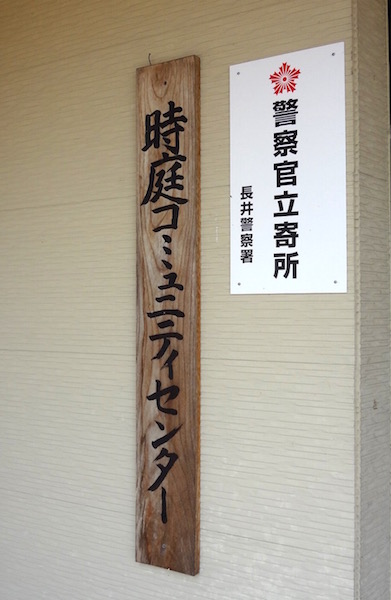 警察官立寄所
長井警察署
時庭コミュニティセンター